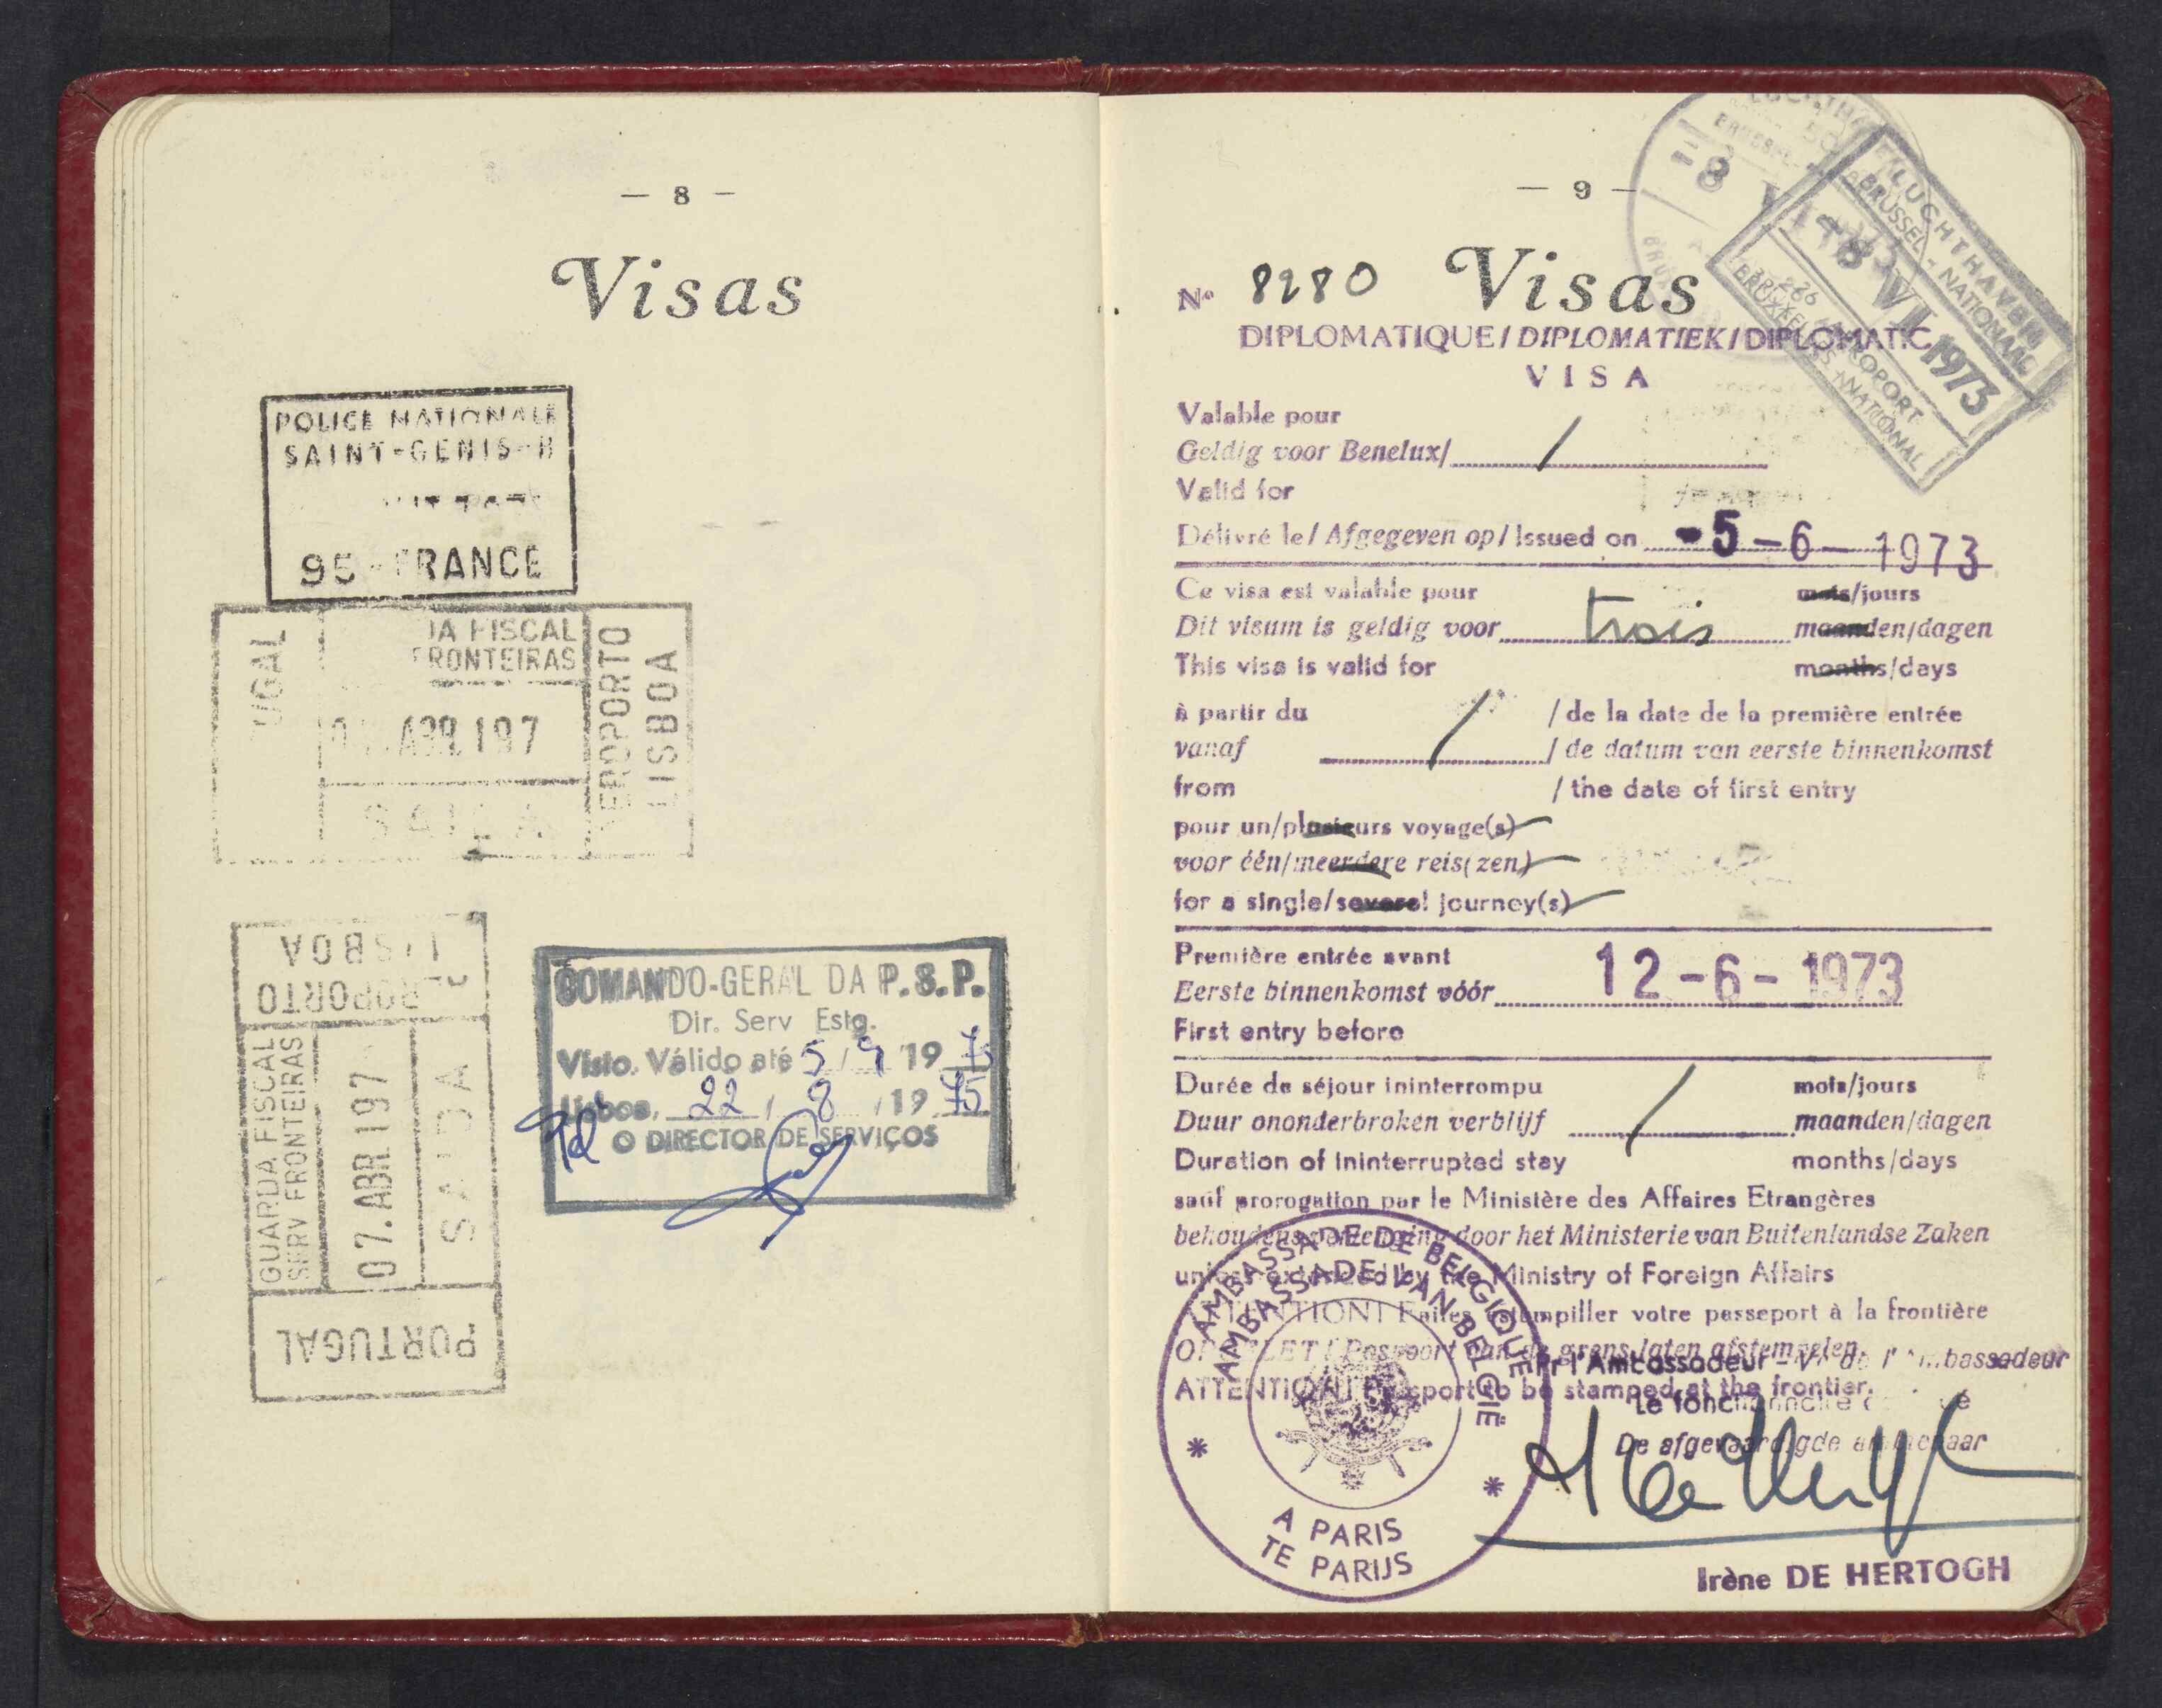 — 8 —
Visas
POLICE NATIONALE
SAINT-GENIS-H
95 - FRANCE
UGAL
DA FISCAL
FRONTEIRAS
ABR. 197
SAIDA
EROPORTO
LISBOA
LISBOA
ROPORTO
GUARDA FISCAL
SERV FRONTEIRAS
07. ABR. 197
SAIDA
PORTUGAL
COMANDO-GERAL DA P.S.P.
Dir. Serv Estg.
Visto. Válido até 5 / 9 19 75
Lisboa, 22 / 8 / 19 75
O DIRECTOR DE SERVIÇOS
— 9 —
-8 V
LUCHTHAVEN
BRUSSEL - NATIONAAL
-8 VI 1973
226
AEROPORT
BRUXELLES NATIONAL
No 8280 Visas
DIPLOMATIQUE / DIPLOMATIEK / DIPLOMATIC
VISA
Valable pour
Geldig voor Benelux/ /
Valid for
Délivré le / Afgegeven op / Issued on -5-6-1973
Ce visa est valable pour mois/jours
Dit visum is geldig voor trois maanden/dagen
This visa is valid for months/days
à partir du / de la date de la première entrée
vanaf / / de datum van eerste binnenkomst
from / the date of first entry
pour un/plusieurs voyage(s)
voor één/meerdere reis(zen)
for a single/several journey(s)
Première entrée avant
Eerste binnenkomst vóór 12-6-1973
First entry before
Durée de séjour ininterrompu mois/jours
Duur ononderbroken verblijf / maanden/dagen
Duration of ininterrupted stay months/days
sauf prorogation par le Ministère des Affaires Etrangères
behoudens verlenging door het Ministerie van Buitenlandse Zaken
unless extended by the Ministry of Foreign Affairs
ATTENTION! Faites estampiller votre passeport à la frontière
OPGELET! Paspoort aan de grens laten afstempelen.
ATTENTION! Passport to be stamped at the frontier.
Pr l'Ambassadeur - Vr de l'Ambassadeur
Le fonctionnaire
De afgevaardigde ambtenaar
AMBASSADE DE BELGIQUE
AMBASSADE VAN BELGIË
A PARIS
TE PARIJS
Irène DE HERTOGH